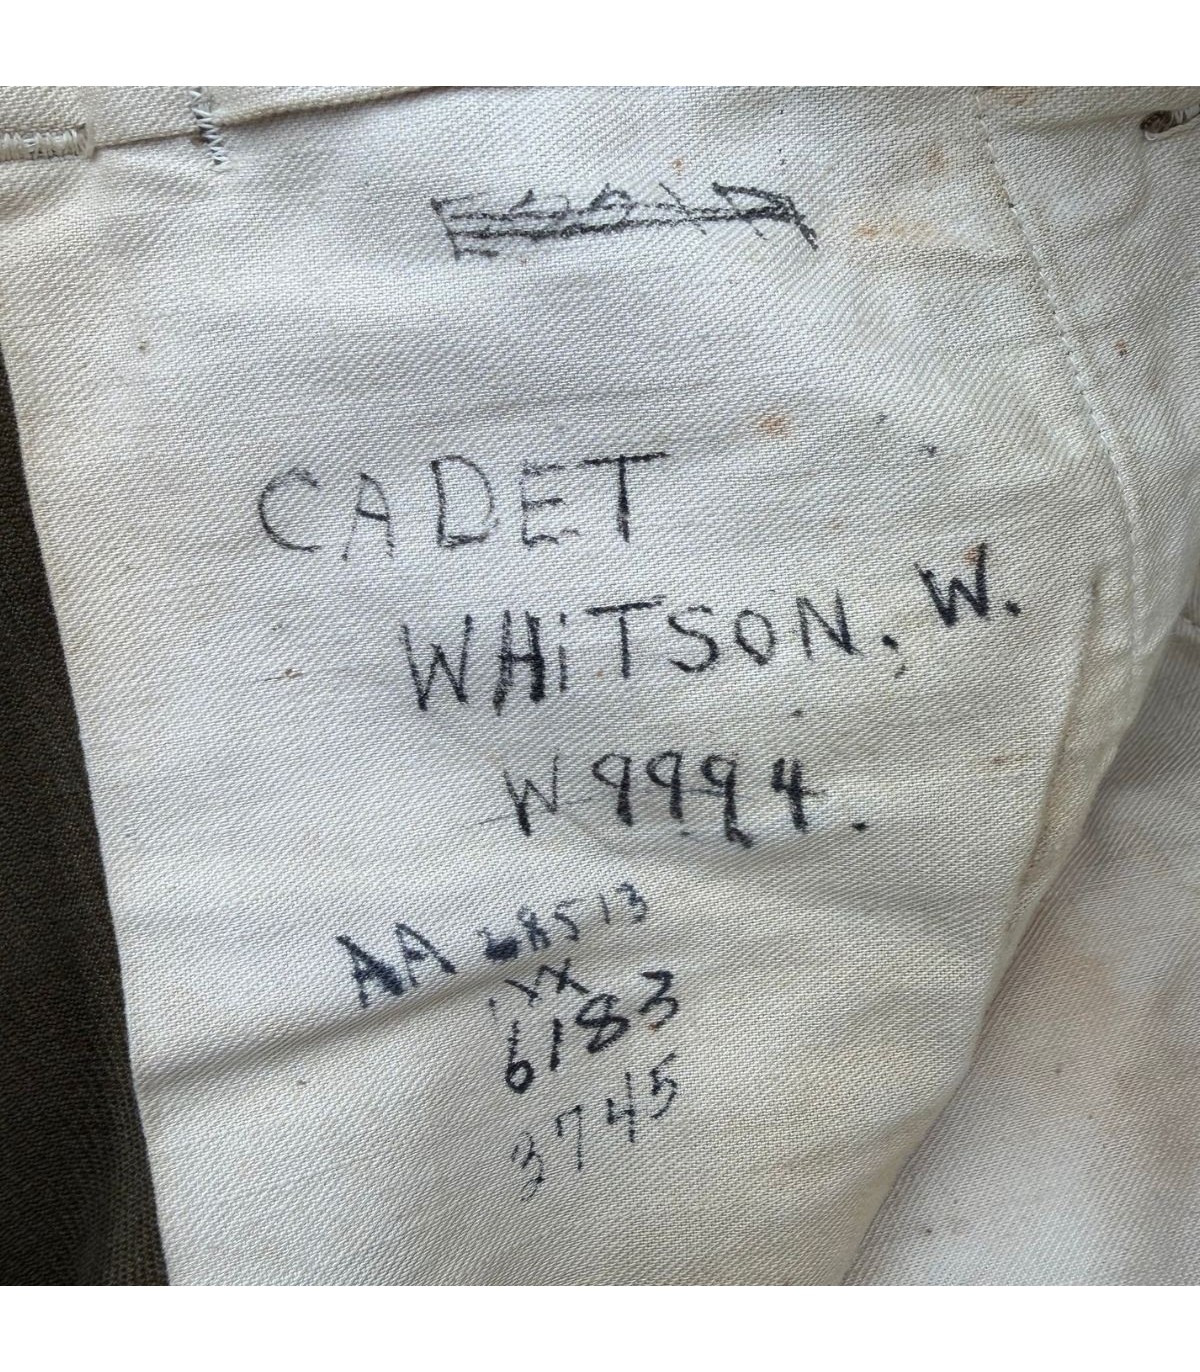 CADET
WHiTSON, W.
W9994.
AA 8513
6183
3745